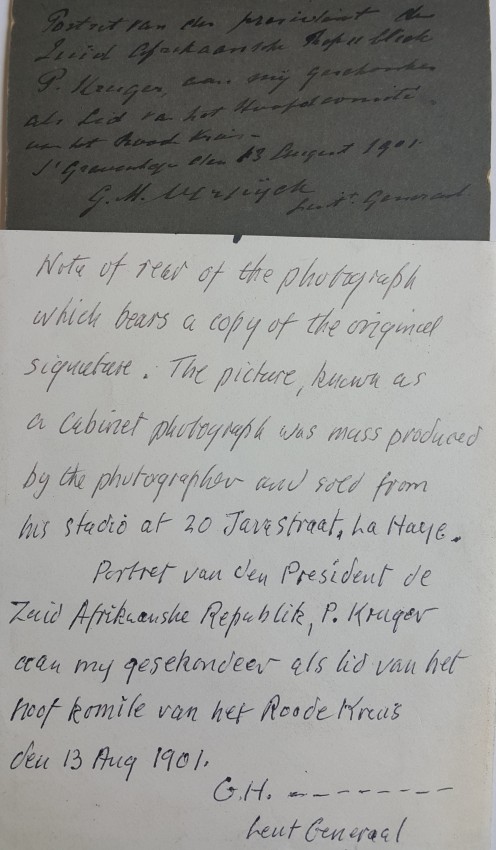 Portret van den president der
Zuid Afrikaansche Republiek
P. Kruger, aan mij geschonken
als Lid van het Hoofdcomité
van het Roode Kruis –
's Gravenhage den 13 August 1901.
G. M.
Luit. Generaal
Nota of rear of the photograph
which bears a copy of the original
signature. The picture, known as
a cabinet photograph was mass produced
by the photographer and sold from
his studio at 20 Javastraat, La Haye.
Portret van den President de
Zuid Afrikaanshe Republik, P. Kruger
aan my gesekondeer als lid van het
hoof komite van het Roode Kreus
den 13 Aug 1901.
G.H. ---------
Leut Generaal